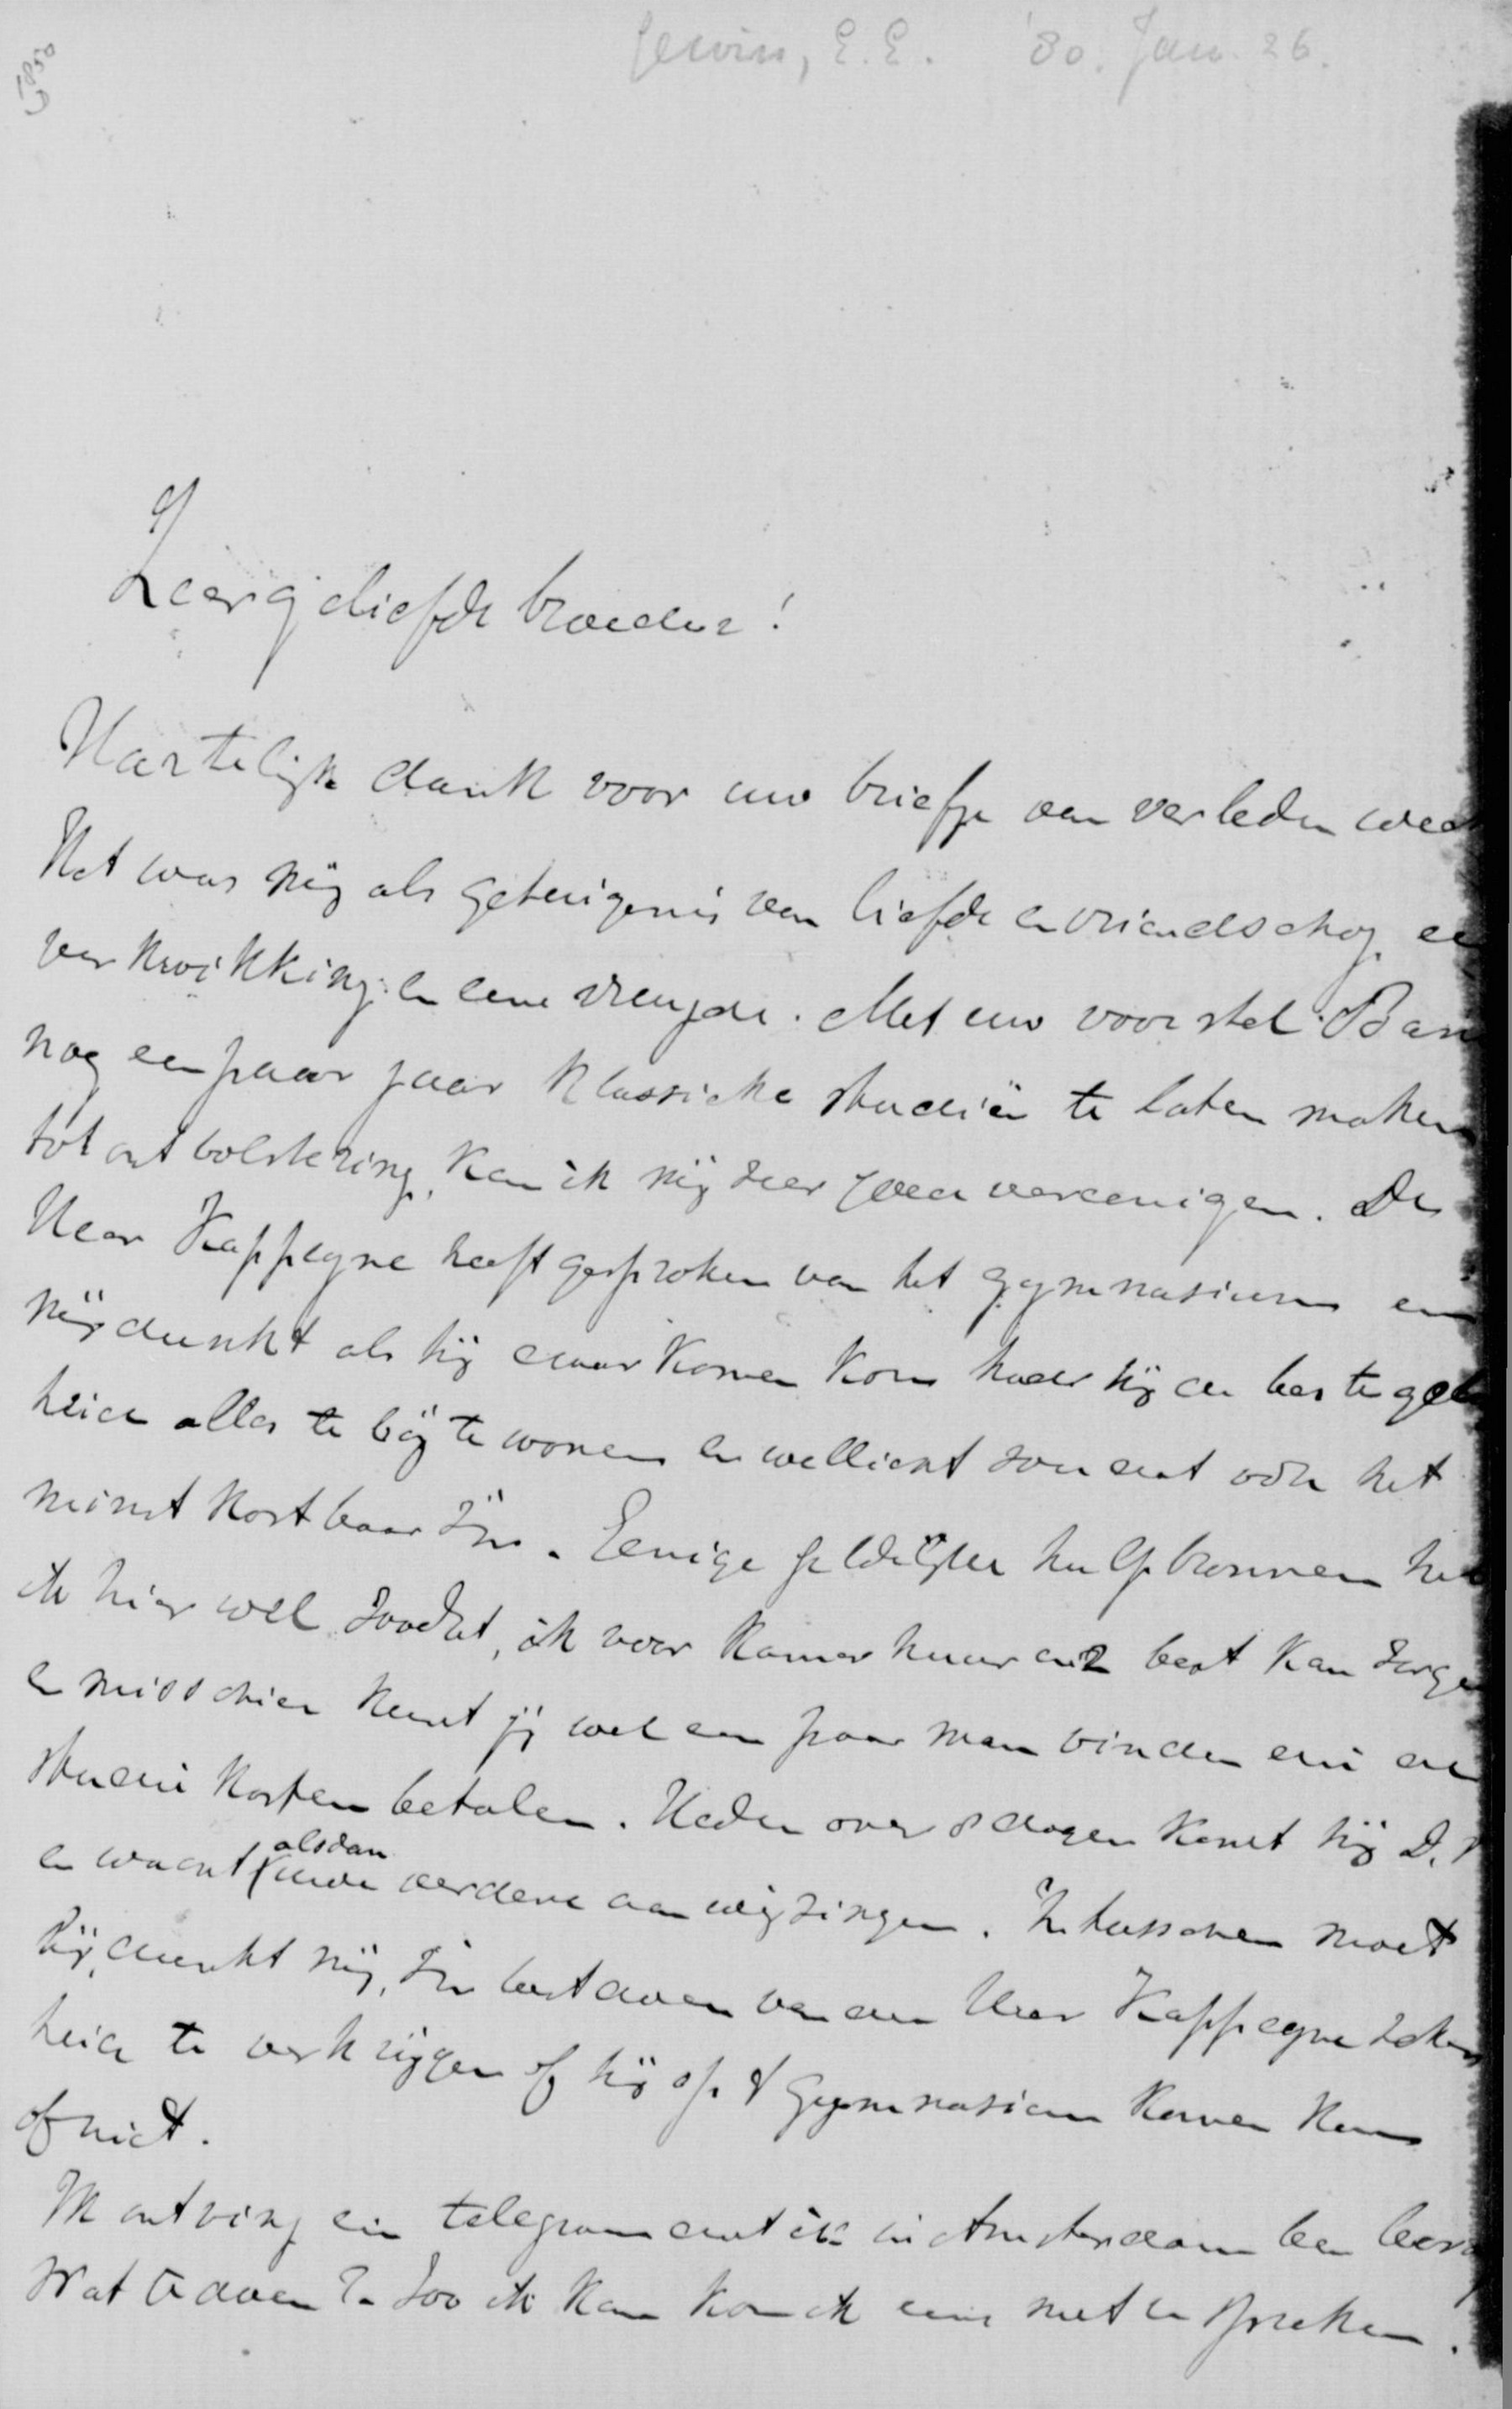 Gewin, E. E. '80. Jan. 26.
Zeergeliefde broeder!
Hartelijk dank voor uw briefje van verleden week
Het was mij als getuigenis van liefde en vriendschap ee
verkwikking en eene vreugde. Met uw voorstel Ban
nog een paar jaar klassieke studiën te laten maken
tot ontbolstering, kan ik mij zeer goed vereenigen. De
Heer Kappeyne heeft gesproken van het gymnasium en
mij dunkt als hij daar komen kon had hij de beste gele
heid alles te bij te wonen en wellicht zou dat ook het
minst kostbaar zijn. Eenige geldelijke hulpbronnen heb
ik hier wel zoodat, ik voor kamerhuur enz best kan zorgen
en misschien kunt jij wel een paar man vinden die de
studie kosten betalen. Heden over 8 dagen komt hij D.V
en wacht alsdan uwe verdere aanwijzingen. Intusschen moet
hij, dunkt mij, zijn best doen van den Heer Kappeyne zeker
heid te verkrijgen of hij op 't Gymnasium komen kan
of niet.
Ik ontving een telegram dat ik in Amsterdam ben beroe
Wat te doen? Zoo ik kan kom ik eens met u spreken.